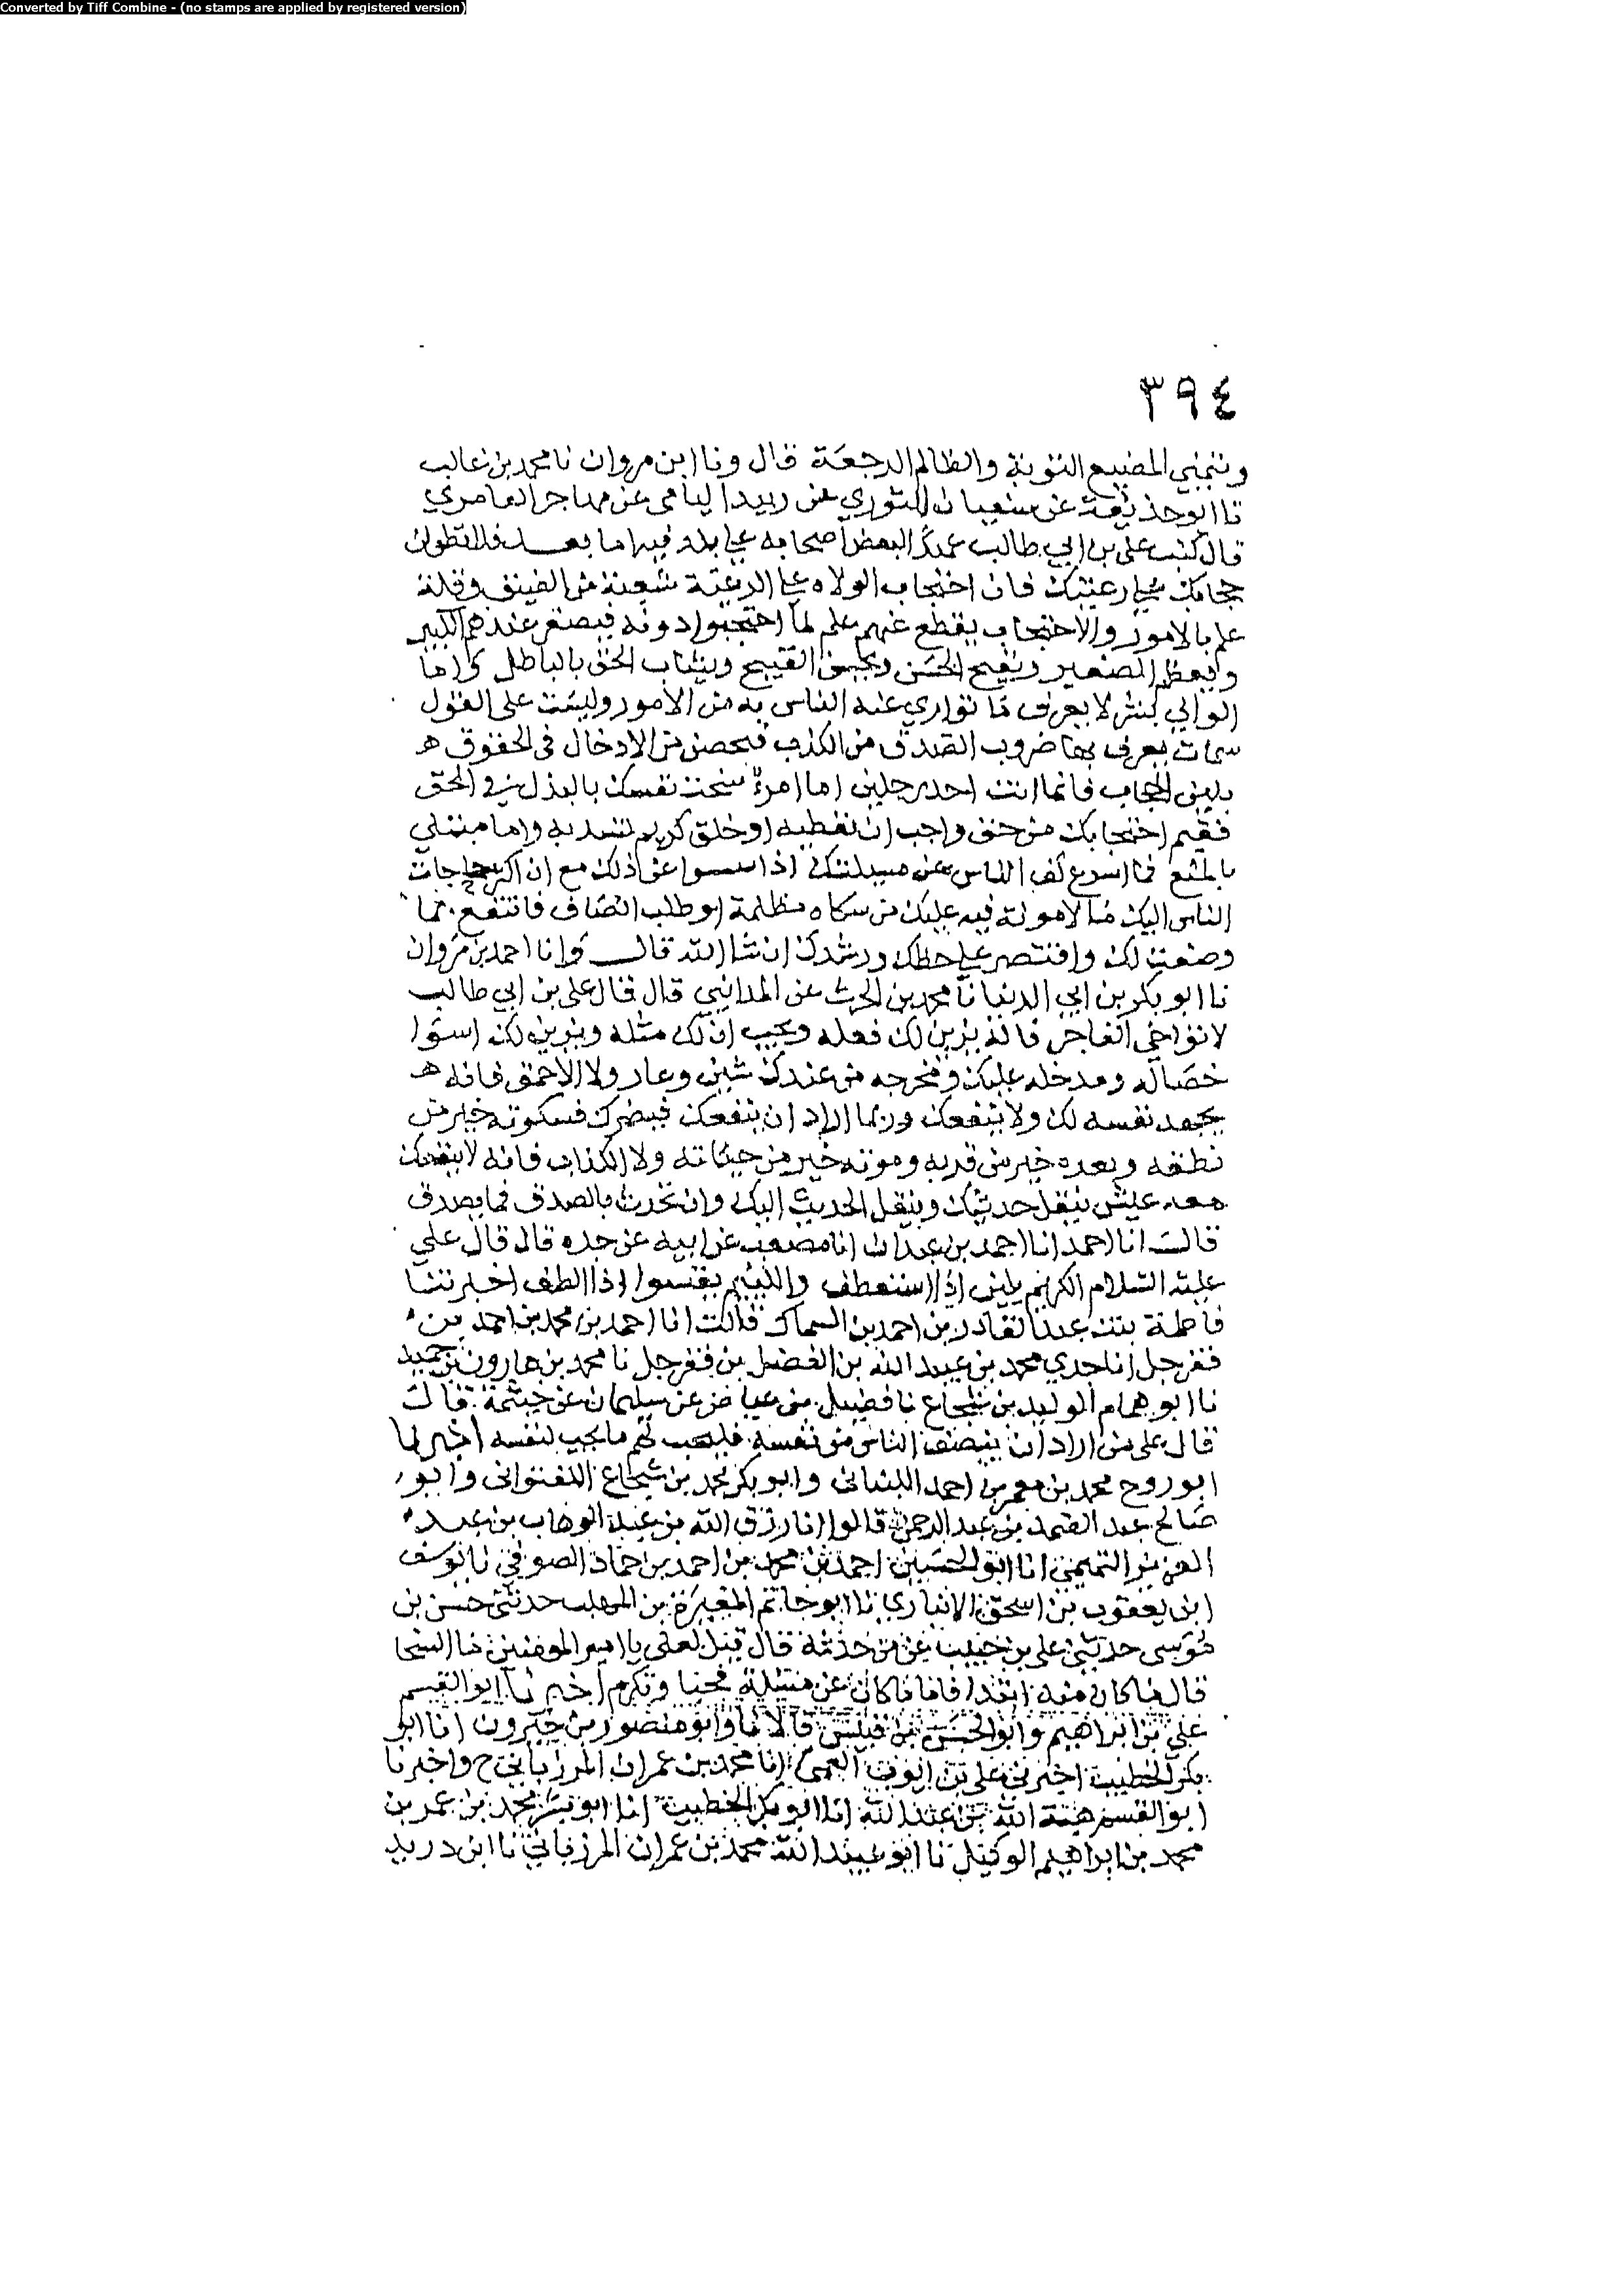 Converted by Tiff Combine - (no stamps are applied by registered version)
٣٩٤
ويتمنى المضيع التوبة والظالم الرجعة قال ونا ابن مروان نا محمد بن غالب
نا ابو حذيفة عن سفيان الثوري عن زبيد اليامي عن مهاجر العامري
قال كتب علي بن ابي طالب عهدا لبعض اصحابه على بلد فيه اما بعد فلا تطولن
حجابك على رعيتك فان احتجاب الولاه على الرعية شعبة من الضيق وقلة
علم بالامور والاحتجاب يقطع عنهم علم ما احتجبوا دونه فيصغر عندهم الكبير
ويعظم الصغير ويقبح الحسن ويحسن القبيح ويشاب الحق بالباطل وانما
الوالي بشر لا يعرف ما توارى عنه الناس به من الامور وليست على القول
سمات يعرف بها ضروب الصدق من الكذب فتحصن من الادخال في الحقوق
بلين الحجاب فانما انت احد رجلين اما امرؤ سخت نفسك بالبذل في الحق
ففيم احتجابك من حق واجب ان تعطيه او خلق كريم تسديه واما مبتلى
بالمنع فما اسرع كف الناس عن مسيلتك اذا عن ذلك مع ان اكثر حاجات
الناس اليك ما لا مونة فيه عليك من شكاه مظلمة او طلب انصاف فانتفع بما
وصفت لك واقتصر على حظك ورشدك ان شا الله قال وانا احمد بن مروان
نا ابو بكر بن ابي الدنيا نا محمد بن الحرث عن المدايني قال قال علي بن ابي طالب
لا تواخي الفاجر فانه يزين لك فعله ويحب انك مثله ويزين لك اسوا
خصاله ومدخله عليك ومخرجه من عندك شين وعار ولا الاحمق فانه
يجهد نفسه لك ولا ينفعك وربما اراد ان ينفعك فيضرك فسكوته خير من
نطقه وبعده خير من قربه وموته خير من حياته ولا الكذاب فانه لا ينفعك
معه عيش ينقل حديثك وينقل الحديث اليك وان تحدث بالصدق فما يصدق
قال انا احمد انا احمد بن عبدان انا مصعب عن ابيه عن جده قال قال علي
عليه السلام الكريم يلين اذا استعطف واللئيم يقسوا اذا الطف اخبرتنا
فاطمة بنت عبد القادر بن احمد بن السماك قالت انا احمد بن محمد بن احمد بن
قفرجل انا جدي محمد بن عبيد الله بن الفضل بن قفرجل نا محمد بن هارون بن حميد
نا ابو همام الوليد بن شجاع نا فضيل بن عياض عن سليمان عن خيثمة قال
قال علي من اراد ان ينصف الناس من نفسه فليحب لهم ما يحب لنفسه اخبرنا
ابو روح محمد بن معمر بن احمد اللنباني وابو بكر محمد بن شجاع اللفتواني وابو
صالح عبد الصمد بن عبد الرحمن قالوا انا رزق الله بن عبد الوهاب بن عبد
العزيز التميمي انا ابو الحسين احمد بن محمد بن احمد بن حماد الصوفي نا يوسف
ابن يعقوب بن اسحق الانباري نا ابو حاتم المغيرة بن المهلب حدثني حسن بن
موسى حدثني علي بن حبيب عن من حدثه قال قيل لعلي يا امير المومنين ما السخا
قال ما كان منه ابتدا فاما ما كان عن مسئلة فحيا وتكرم اخبرنا ابو القسم
علي بن ابراهيم وابو الحسن بن قبيس قالا نا وابو منصور بن خيرون انا ابو
بكر الخطيب اخبرني علي بن ايوب القمي انا محمد بن عمران المرزباني ح واخبرنا
ابو القسم هبة الله بن عبد الله انا ابو بكر الخطيب انا ابو بشر محمد بن عمر بن
محمد بن ابراهيم الوكيل نا ابو عبيد الله محمد بن عمران المرزباني نا ابن دريد